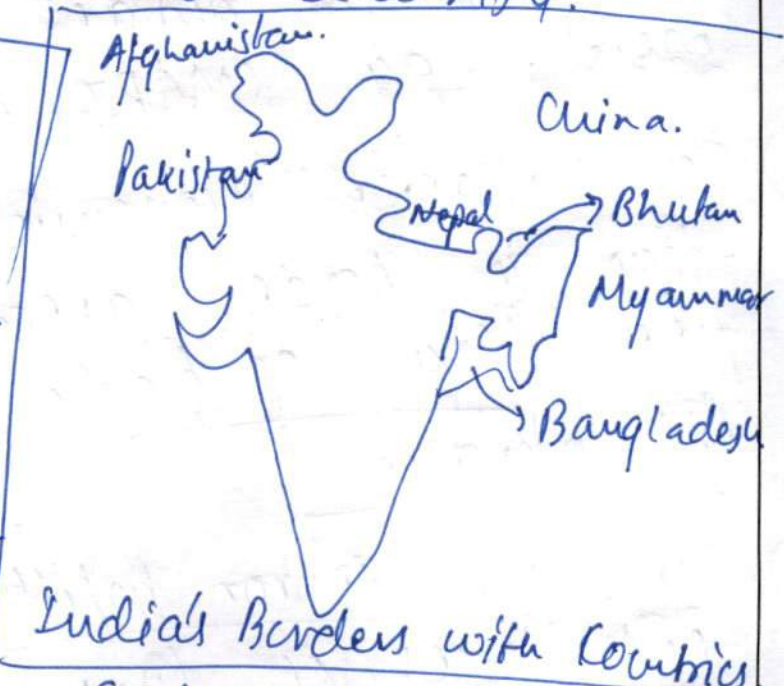 Afghanistan.
China.
Pakistan
Nepal
Bhutan
Myanmar
Bangladesh
India's Borders with Countries